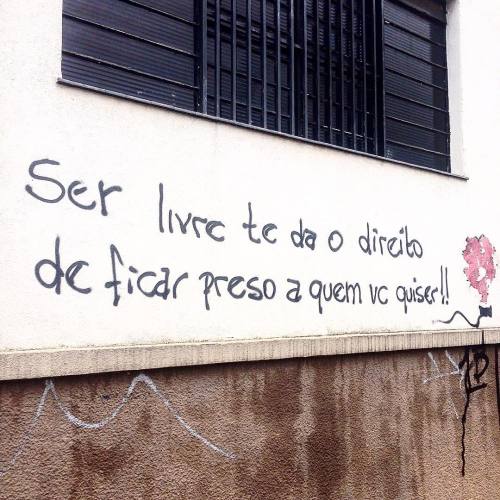 Ser livre te da o direito
de ficar preso a quem vc quiser!!